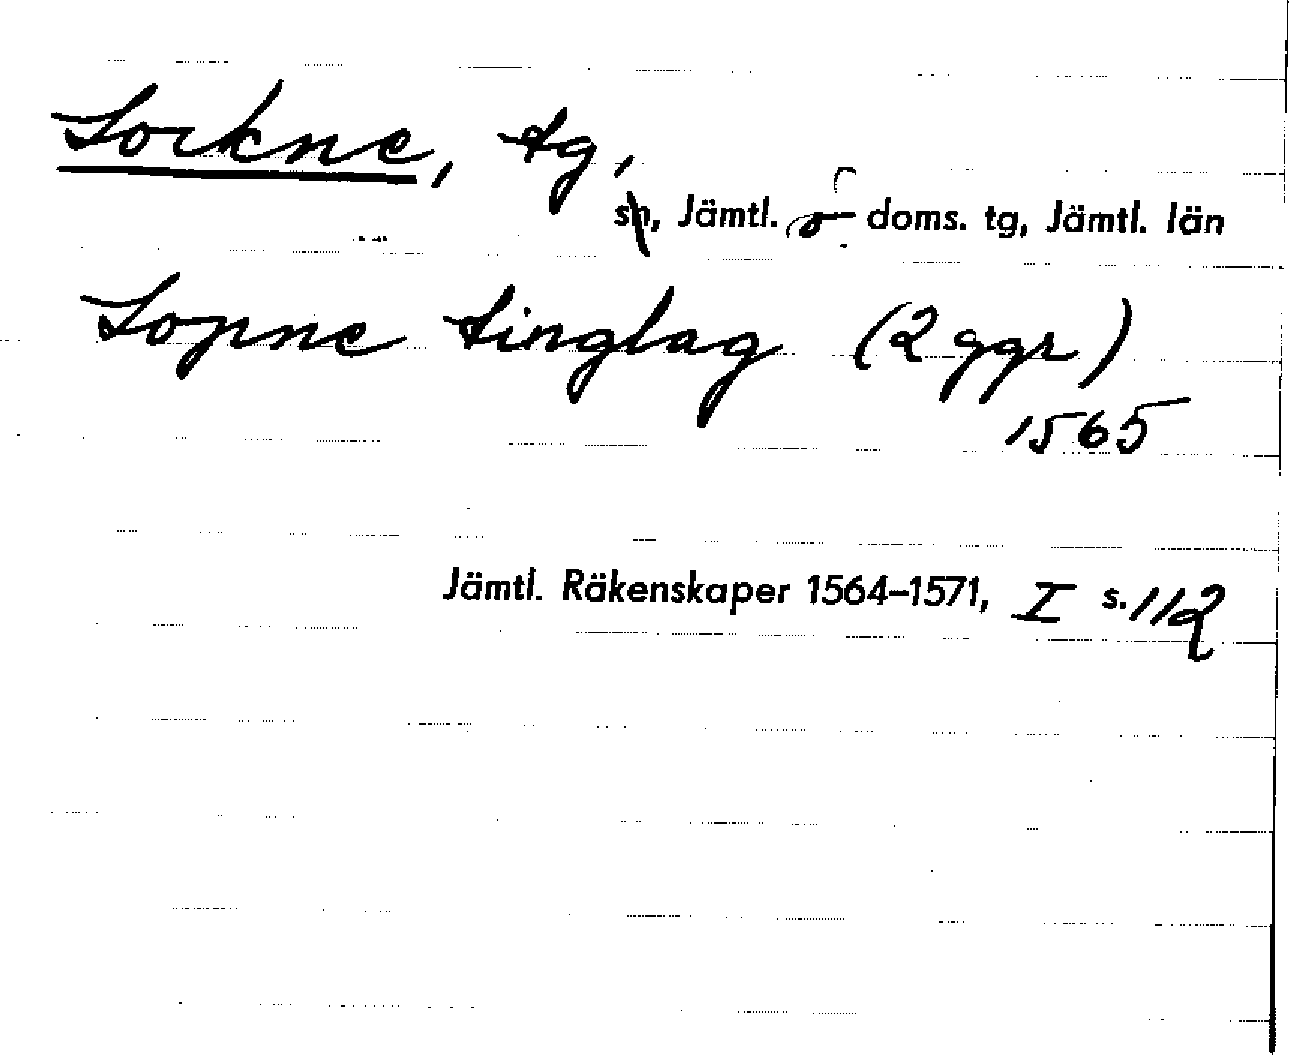 Lockne, tg,
sn, Jämtl. ö doms. tg, Jämtl. län
Lopne tinglag (2 ggr)
1565
Jämtl. Räkenskaper 1564-1571, I s. 112